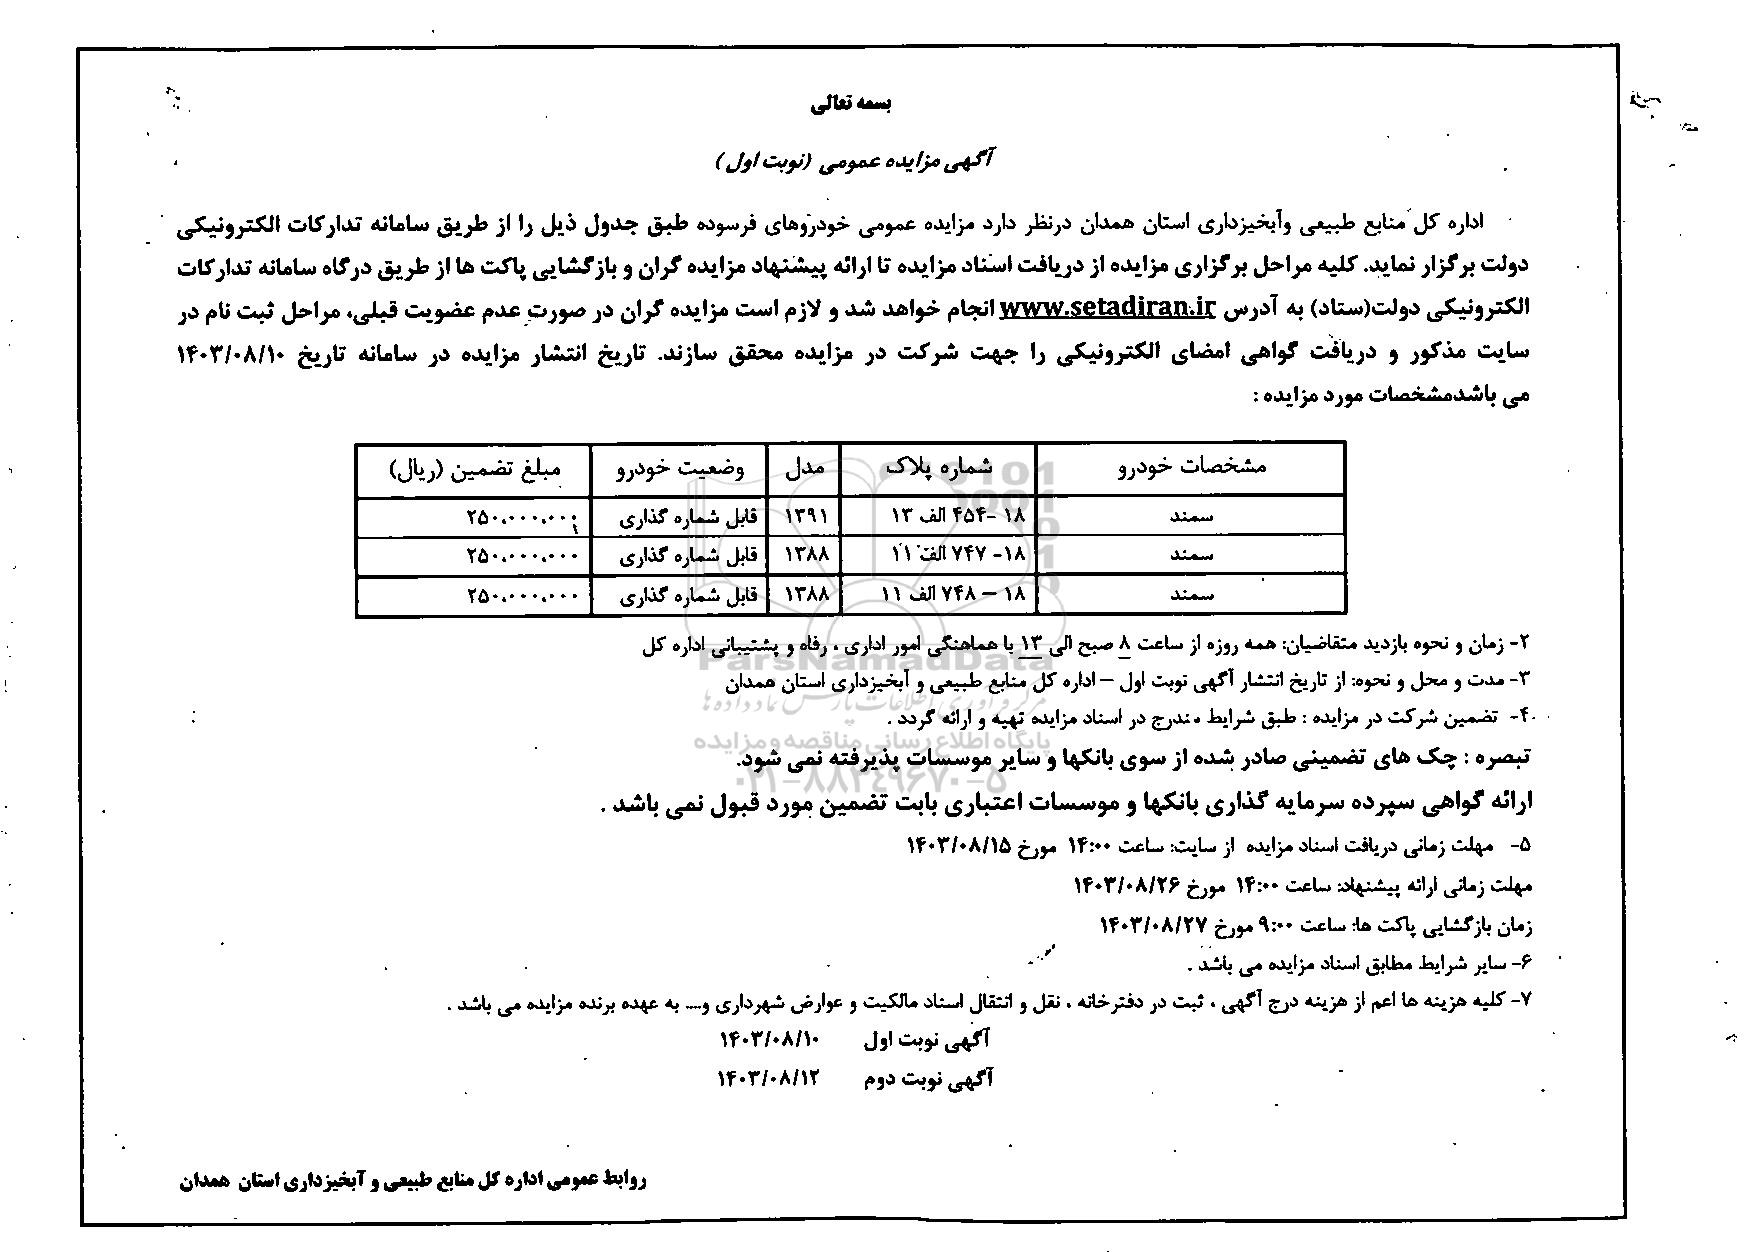 بسمه تعالی
آگهی مزایده عمومی (نوبت اول)
اداره کل منابع طبیعی وآبخیزداری استان همدان درنظر دارد مزایده عمومی خودروهای فرسوده طبق جدول ذیل را از طریق سامانه تدارکات الکترونیکی
دولت برگزار نماید. کلیه مراحل برگزاری مزایده از دریافت اسناد مزایده تا ارائه پیشنهاد مزایده گران و بازگشایی پاکت ها از طریق درگاه سامانه تدارکات
الکترونیکی دولت(ستاد) به آدرس www.setadiran.ir انجام خواهد شد و لازم است مزایده گران در صورت عدم عضویت قبلی، مراحل ثبت نام در
سایت مذکور و دریافت گواهی امضای الکترونیکی را جهت شرکت در مزایده محقق سازند. تاریخ انتشار مزایده در سامانه تاریخ ۱۴۰۳/۰۸/۱۰
می باشدمشخصات مورد مزایده :
مشخصات خودرو شماره پلاک مدل وضعیت خودرو مبلغ تضمین (ریال)
سمند ۱۸ -۴۵۴ الف ۱۳ ۱۳۹۱ قابل شماره گذاری ۲۵۰،۰۰۰،۰۰۰
سمند ۱۸- ۷۴۷ الف ۱۱ ۱۳۸۸ قابل شماره گذاری ۲۵۰،۰۰۰،۰۰۰
سمند ۱۸ – ۷۴۸ الف ۱۱ ۱۳۸۸ قابل شماره گذاری ۲۵۰،۰۰۰،۰۰۰
۲- زمان و نحوه بازدید متقاضیان: همه روزه از ساعت ۸ صبح الی ۱۳ با هماهنگی امور اداری ، رفاه و پشتیبانی اداره کل
ParsNamadData
۳- مدت و محل و نحوه: از تاریخ انتشار آگهی نوبت اول – اداره کل منابع طبیعی و آبخیزداری استان همدان
مرکز فرآوری اطلاعات پارس نماد داده ها
۴- تضمین شرکت در مزایده : طبق شرایط مندرج در اسناد مزایده تهیه و ارائه گردد .
پایگاه اطلاع رسانی مناقصه و مزایده
تبصره : چک های تضمینی صادر شده از سوی بانکها و سایر موسسات پذیرفته نمی شود.
۰۲۱-۸۸۳۴۹۶۷۰-۵
ارائه گواهی سپرده سرمایه گذاری بانکها و موسسات اعتباری بابت تضمین مورد قبول نمی باشد .
۵- مهلت زمانی دریافت اسناد مزایده از سایت: ساعت ۱۴:۰۰ مورخ ۱۴۰۳/۰۸/۱۵
مهلت زمانی ارائه پیشنهاد: ساعت ۱۴:۰۰ مورخ ۱۴۰۳/۰۸/۲۶
زمان بازگشایی پاکت ها: ساعت ۹:۰۰ مورخ ۱۴۰۳/۰۸/۲۷
۶- سایر شرایط مطابق اسناد مزایده می باشد .
۷- کلیه هزینه ها اعم از هزینه درج آگهی ، ثبت در دفترخانه ، نقل و انتقال اسناد مالکیت و عوارض شهرداری و.... به عهده برنده مزایده می باشد .
آگهی نوبت اول ۱۴۰۳/۰۸/۱۰
آگهی نوبت دوم ۱۴۰۳/۰۸/۱۲
روابط عمومی اداره کل منابع طبیعی و آبخیزداری استان همدان